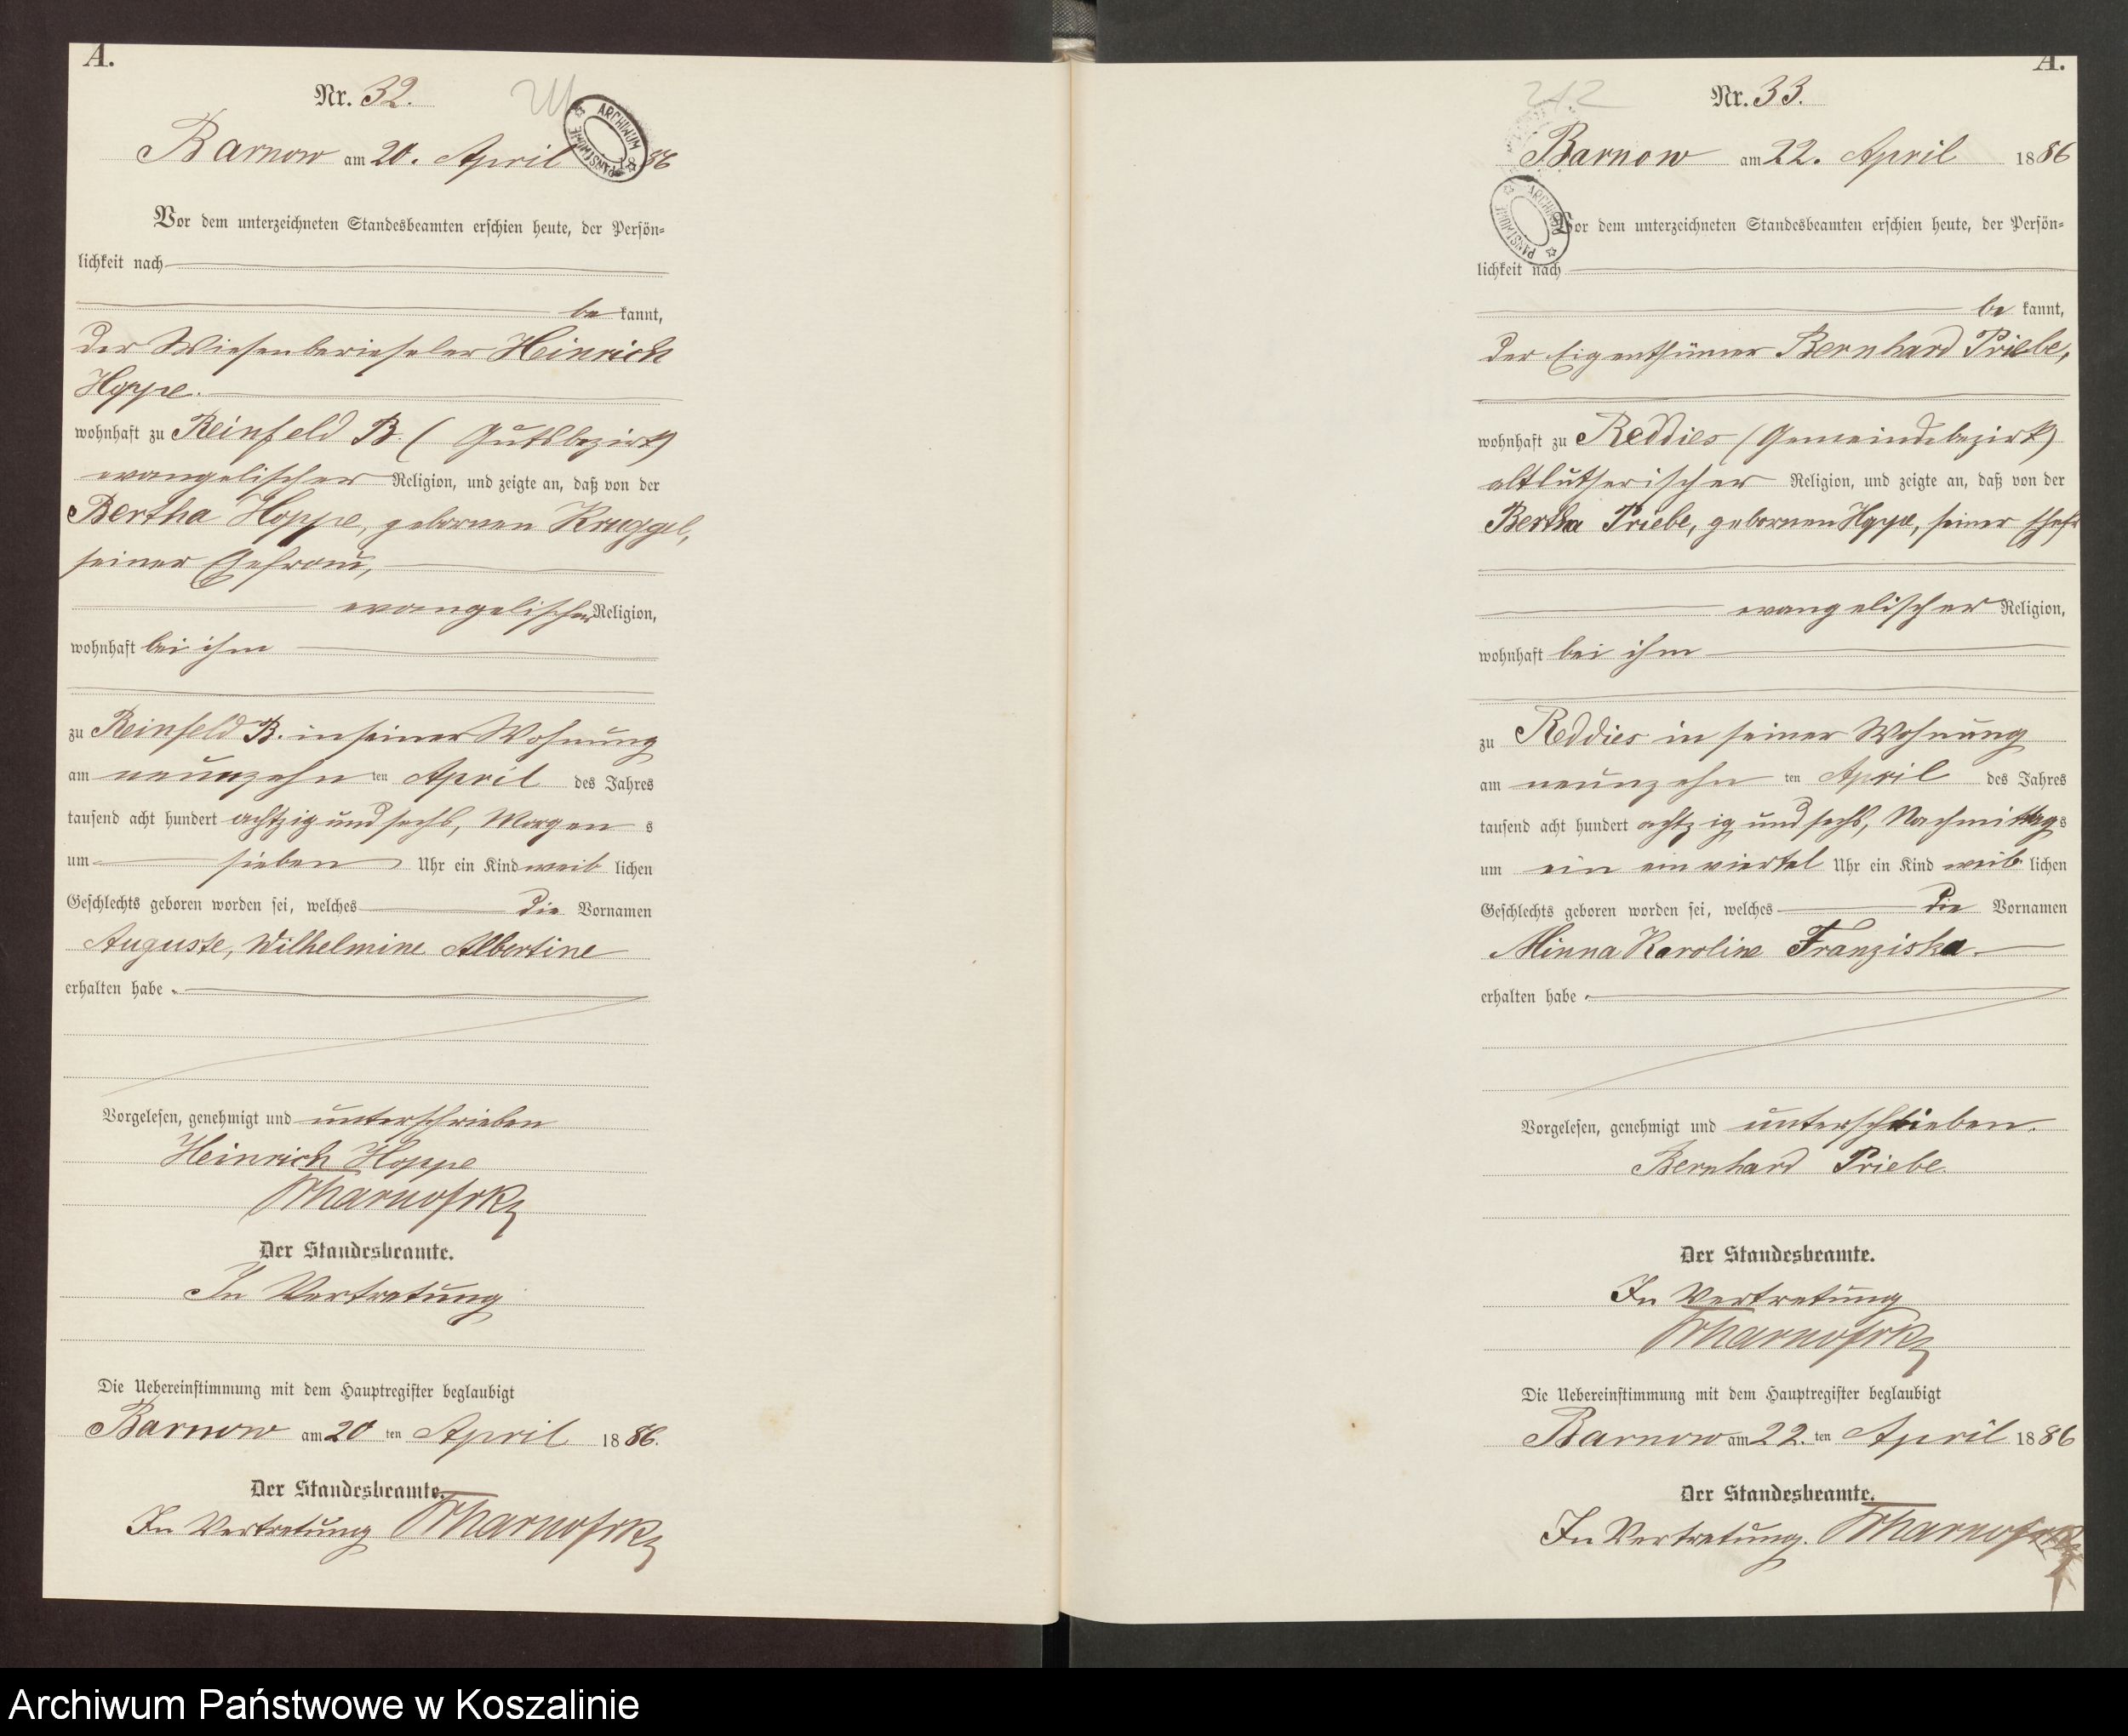 A.
Nr. 32.
211
ARCHIWUM PAŃSTWOWE
Barnow am 20. April 86
Vor dem unterzeichneten Standesbeamten erschien heute, der Persön-
lichkeit nach
be kannt,
der Wiesenberieseler Heinrich
Hoppe.
wohnhaft zu Reinfeld B. (Gutsbezirk)
evangelischer Religion, und zeigte an, daß von der
Bertha Hoppe, gebornen Kruggel,
seiner Ehefrau,
evangelischer Religion,
wohnhaft bei ihm
zu Reinfeld B. in seiner Wohnung
am neunzehn ten April des Jahres
tausend acht hundert achtzig und sechs, Morgen s
um sieben Uhr ein Kind weib lichen
Geschlechts geboren worden sei, welches die Vornamen
Auguste, Wilhelmine Albertine
erhalten habe.
Vorgelesen, genehmigt und unterschrieben
Heinrich Hoppe
Der Standesbeamte.
In Vertretung
Die Uebereinstimmung mit dem Hauptregister beglaubigt
Barnow am 20 ten April 1886.
Der Standesbeamte.
In Vertretung
A.
Nr. 33.
212
Barnow am 22. April 1886
ARCHIWUM PAŃSTWOWE
Vor dem unterzeichneten Standesbeamten erschien heute, der Persön-
lichkeit nach
be kannt,
der Eigenthümer Bernhard Priebe,
wohnhaft zu Reddies (Gemeindebezirk)
altlutherischer Religion, und zeigte an, daß von der
Bertha Priebe, gebornen Hoppe, seiner Ehefr
evangelischer Religion,
wohnhaft bei ihm
zu Reddies in seiner Wohnung
am neunzehn ten April des Jahres
tausend acht hundert achtzig und sechs, Nachmittags
um ein ein viertel Uhr ein Kind weib lichen
Geschlechts geboren worden sei, welches die Vornamen
Minna Karoline Franziska.
erhalten habe.
Vorgelesen, genehmigt und unterschrieben.
Bernhard Priebe.
Der Standesbeamte.
In Vertretung
Die Uebereinstimmung mit dem Hauptregister beglaubigt
Barnow am 22. ten April 1886
Der Standesbeamte.
In Vertretung.
Archiwum Państwowe w Koszalinie